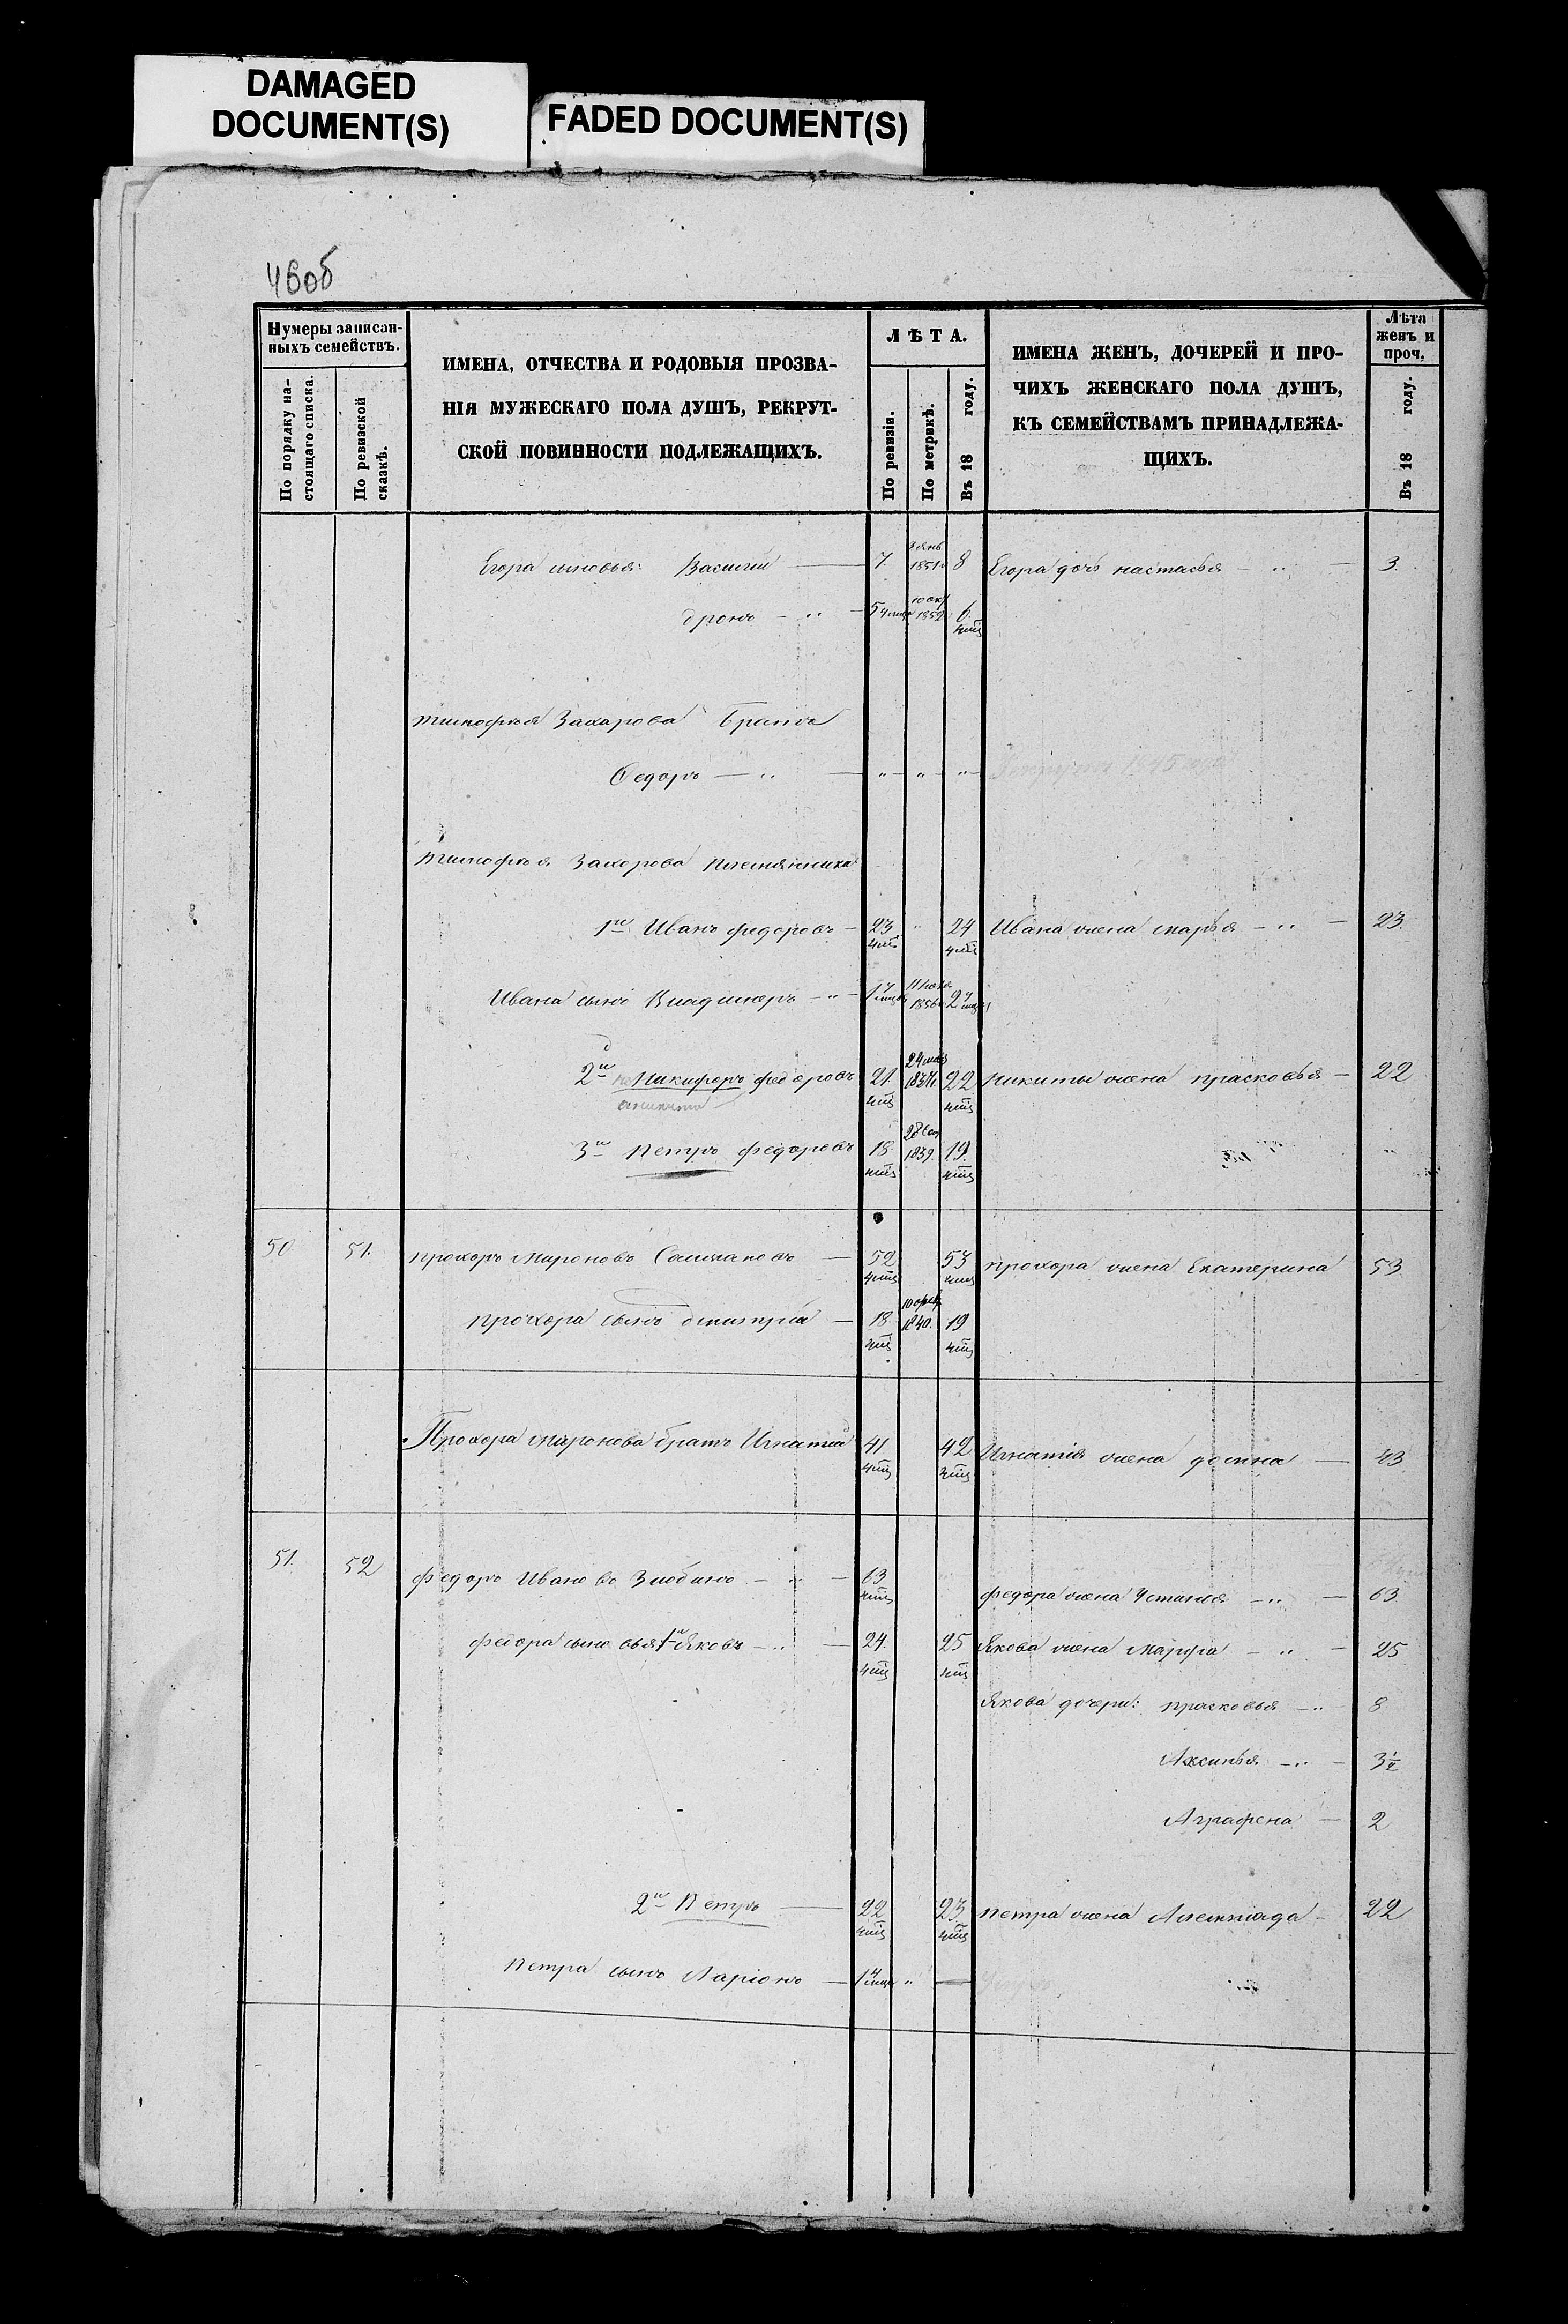 DAMAGED
DOCUMENT(S)
FADED DOCUMENT(S)
46об
Нумеры записан-
ныхъ семействъ.
По порядку на-
стоящаго списка.
По ревизской
сказкѣ.
ИМЕНА, ОТЧЕСТВА И РОДОВЫЯ ПРОЗВА-
НІЯ МУЖЕСКАГО ПОЛА ДУШЪ, РЕКРУТ-
СКОЙ ПОВИННОСТИ ПОДЛЕЖАЩИХЪ.
ЛѢТА.
По ревизіи.
По метрикѣ.
Въ 18 году.
ИМЕНА ЖЕНЪ, ДОЧЕРЕЙ И ПРО-
ЧИХЪ ЖЕНСКАГО ПОЛА ДУШЪ,
КЪ СЕМЕЙСТВАМЪ ПРИНАДЛЕЖА-
ЩИХЪ.
Лѣта
женъ и
проч,
Въ 18 году.
Егора сыновья: Василий — 7. 1851 8 Егора дочь настасья — 3.
дронъ — 5 1852 6
тимофея Захарова Братъ
Федоръ —
тимофея Захарова племянники
1й Иванъ федоровъ — 23 24 Ивана жена марья — 23.
Ивана сынъ Владимеръ — 1 1856 2
2й Никифоръ федоровъ 21. 24 мая 1837 22 никиты жена прасковья — 22
3й петръ федоровъ 18 28 1839. 19
50 51. прохоръ мироновъ — 52 53 прохора жена Екатерина 53
прохора сынъ дмитрій — 18 1840. 19
Прохора миронова братъ Игнатій 41 42 Игнатія жена домна — 43
51. 52 федоръ Ивановъ Злобинъ — 63 федора жена Устинья — 63.
федора сыновья 1й Яковъ — 24. 25 Якова жена Марфа — 25
Якова дочери: прасковья — 8
Аксинья — 3½
Аграфена — 2
2й Петръ — 22 23 петра жена — 22
петра сынъ Ларіонъ — 1